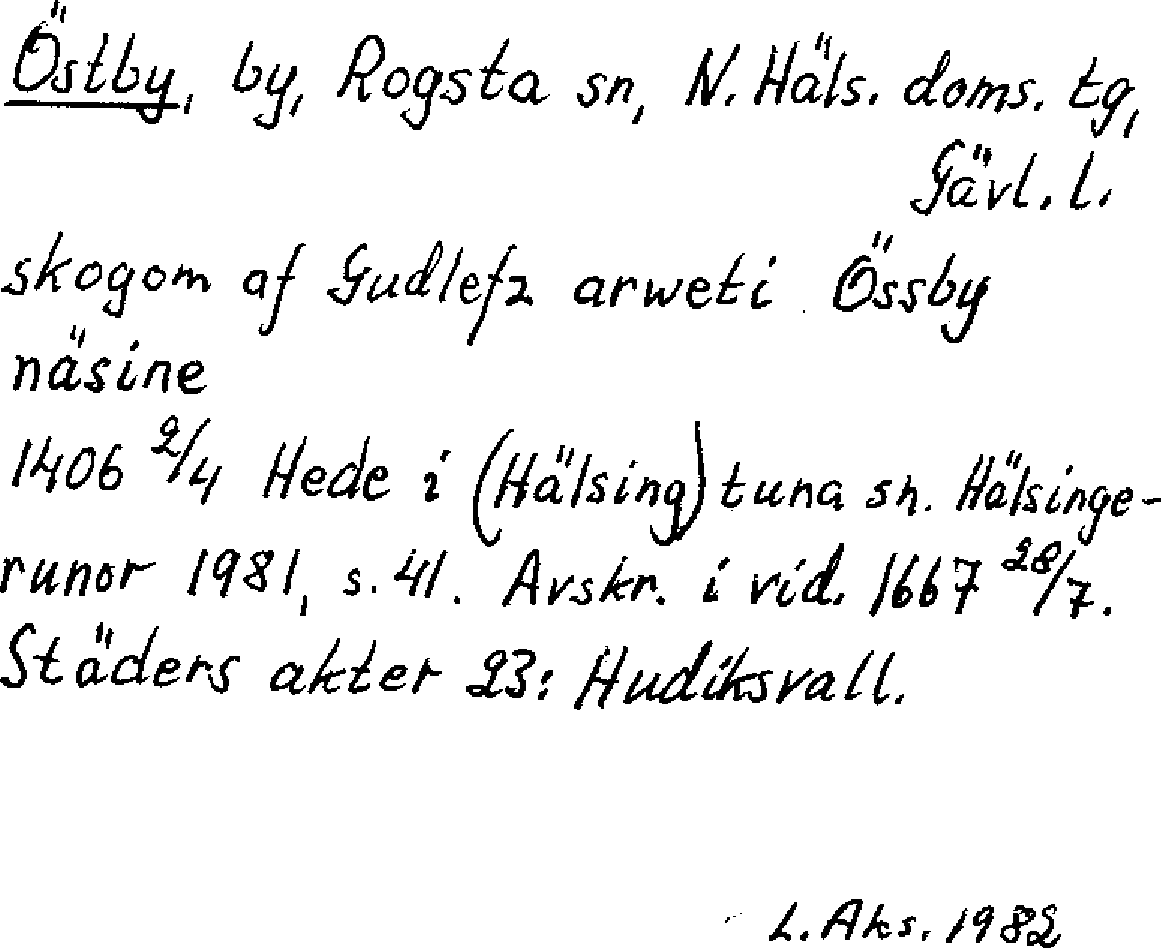 Östby, by, Rogsta sn, N. Häls. doms. tg,
Gävl. l.
skogom af Gudlefz arweti Össby
näsine
1406 2/4 Hede i (Hälsing)tuna sn. Hälsinge-
runor 1981, s. 41. Avskr. i vid. 1667 28/7.
Städers akter 23: Hudiksvall.
L. Aks. 1982